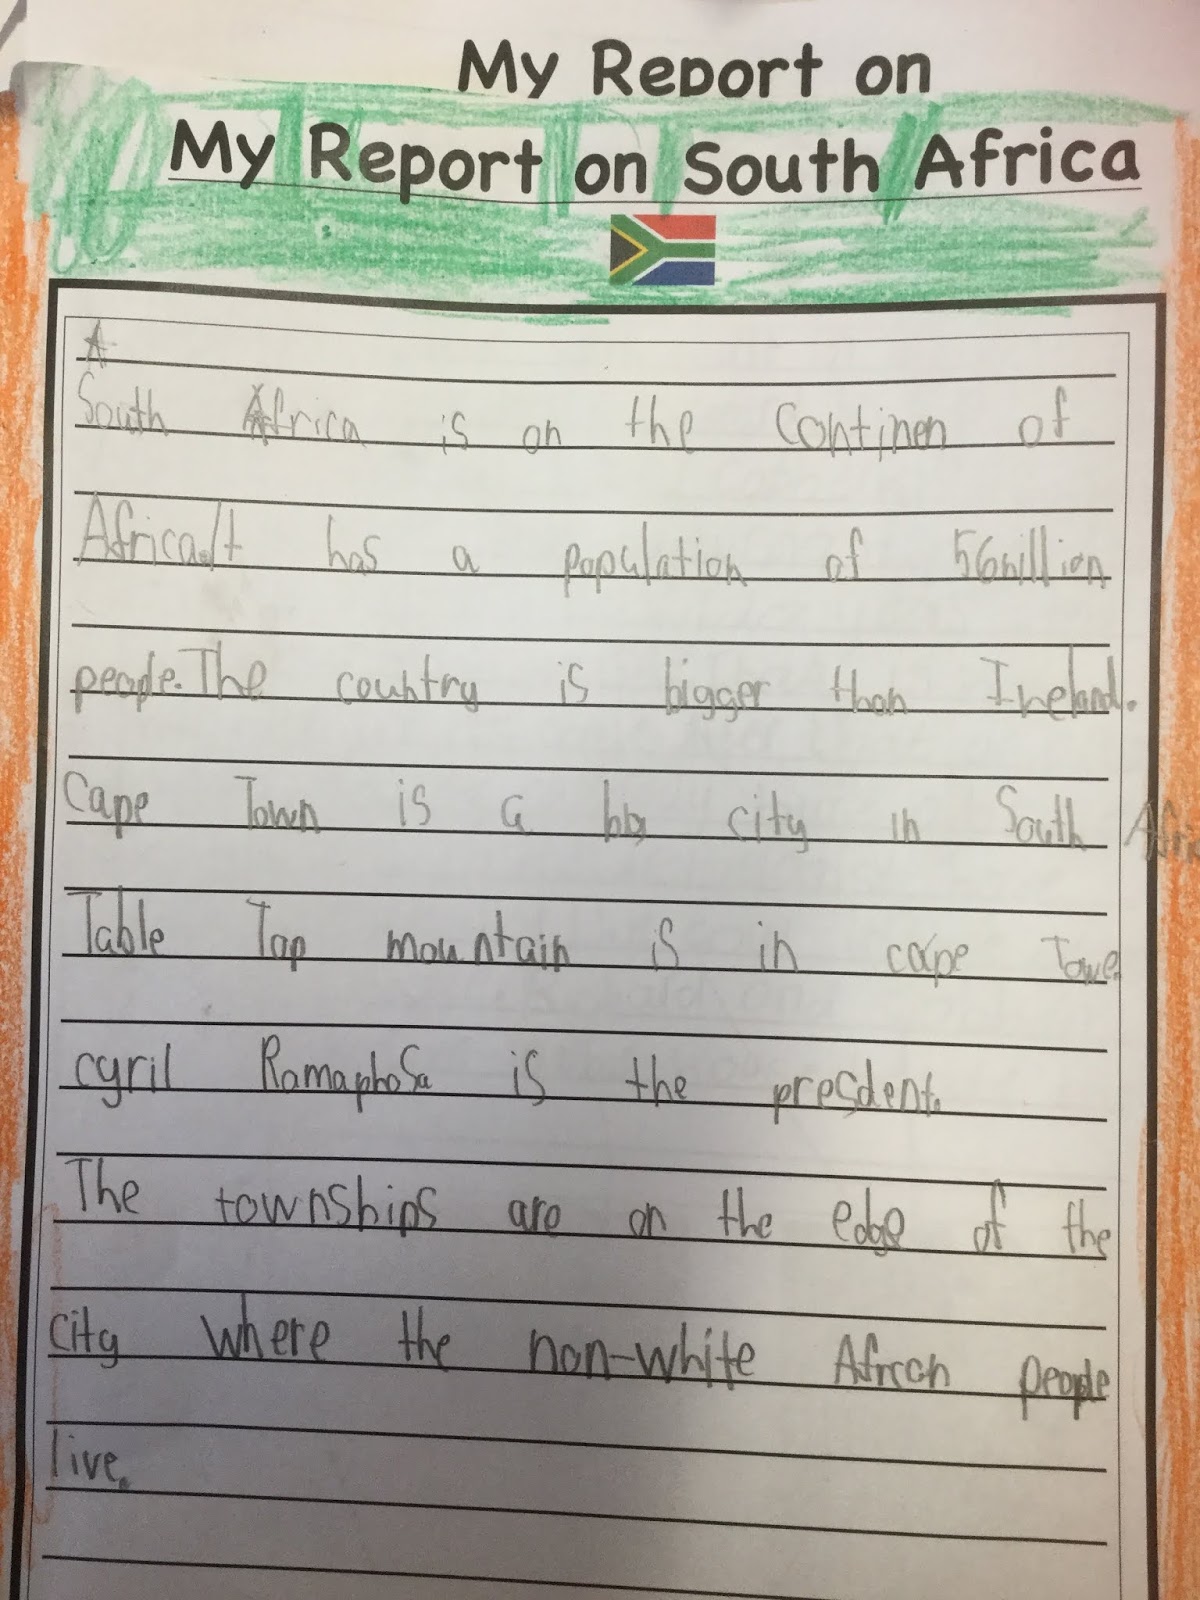 My Report on
My Report on South Africa
A
South Africa is on the continen of
Africa.It has a population of 56million
people.The country is bigger than Ireland.
Cape Town is a big city in South Afri
Table Top mountain is in cape Towe
cyril Ramaphosa is the presdent.
The townships are on the edge of the
city where the non-white Afrcan people
live.